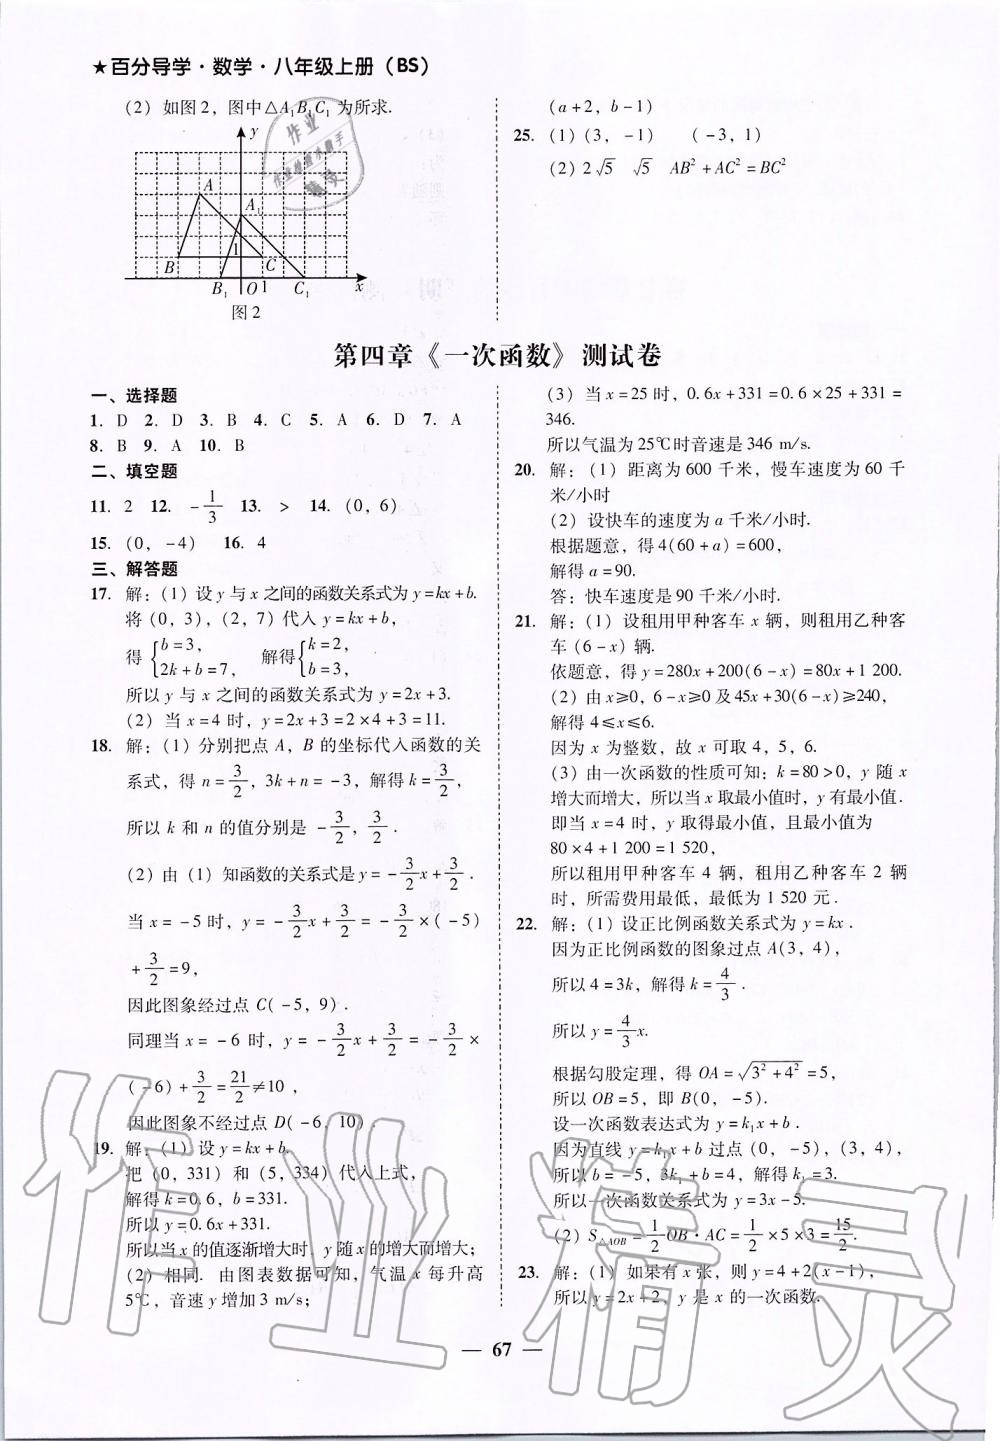 ★百分导学·数学·八年级上册（BS）
(2) 如图2，图中△A₁B₁C₁为所求.
y
A
A₁
1
B
C
B₁ O 1 C₁ x
图2
(a+2, b-1)
25. (1) (3, -1)  (-3, 1)
(2) 2√5  √5  AB²+AC²=BC²
第四章《一次函数》测试卷
一、选择题
1. D 2. D 3. B 4. C 5. A 6. D 7. A
8. B 9. A 10. B
二、填空题
11. 2 12. -1/3 13. > 14. (0, 6)
15. (0, -4) 16. 4
三、解答题
17. 解：(1) 设y与x之间的函数关系式为y=kx+b.
将(0, 3)，(2, 7)代入y=kx+b，
得{b=3, 2k+b=7, 解得{k=2, b=3,
所以y与x之间的函数关系式为y=2x+3.
(2) 当x=4时，y=2x+3=2×4+3=11.
18. 解：(1)分别把点A，B的坐标代入函数的关
系式，得n=3/2，3k+n=-3，解得k=3/2，
所以k和n的值分别是-3/2，3/2.
(2) 由(1)知函数的关系式是y=-3/2x+3/2.
当x=-5时，y=-3/2x+3/2=-3/2×(-5)
+3/2=9，
因此图象经过点C(-5, 9).
同理当x=-6时，y=-3/2x+3/2=-3/2×
(-6)+3/2=21/2≠10，
因此图象不经过点D(-6, 10).
19. 解：(1)设y=kx+b.
把(0, 331)和(5, 334)代入上式，
解得k=0.6，b=331.
所以y=0.6x+331.
所以当x的值逐渐增大时，y随x的增大而增大；
(2) 相同. 由图表数据可知，气温x每升高
5℃，音速y增加3 m/s；
(3) 当x=25时，0.6x+331=0.6×25+331=
346.
所以气温为25℃时音速是346 m/s.
20. 解：(1) 距离为600千米，慢车速度为60千
米/小时
(2) 设快车的速度为a千米/小时.
根据题意，得4(60+a)=600，
解得a=90.
答：快车速度是90千米/小时.
21. 解：(1) 设租用甲种客车x辆，则租用乙种客
车(6-x)辆.
依题意，得y=280x+200(6-x)=80x+1 200.
(2) 由x≥0，6-x≥0及45x+30(6-x)≥240，
解得4≤x≤6.
因为x为整数，故x可取4，5，6.
(3) 由一次函数的性质可知：k=80>0，y随x
增大而增大，所以当x取最小值时，y有最小值.
即当x=4时，y取得最小值，且最小值为
80×4+1 200=1 520，
所以租用甲种客车4辆，租用乙种客车2辆
时，所需费用最低，最低为1 520元.
22. 解：(1)设正比例函数关系式为y=kx.
因为正比例函数的图象过点A(3, 4)，
所以4=3k，解得k=4/3.
所以y=4/3x.
根据勾股定理，得OA=√(3²+4²)=5，
所以OB=5，即B(0, -5).
设一次函数表达式为y=k₁x+b.
因为直线y=k₁x+b过点(0, -5)，(3, 4)，
所以b=-5，3k₁+b=4，解得k₁=3.
所以一次函数关系式为y=3x-5.
(2) S△AOB=1/2OB·AC=1/2×5×3=15/2.
23. 解：(1) 如果有x张，则y=4+2(x-1)，
所以y=2x+2，y是x的一次函数.
— 67 —
作业精灵